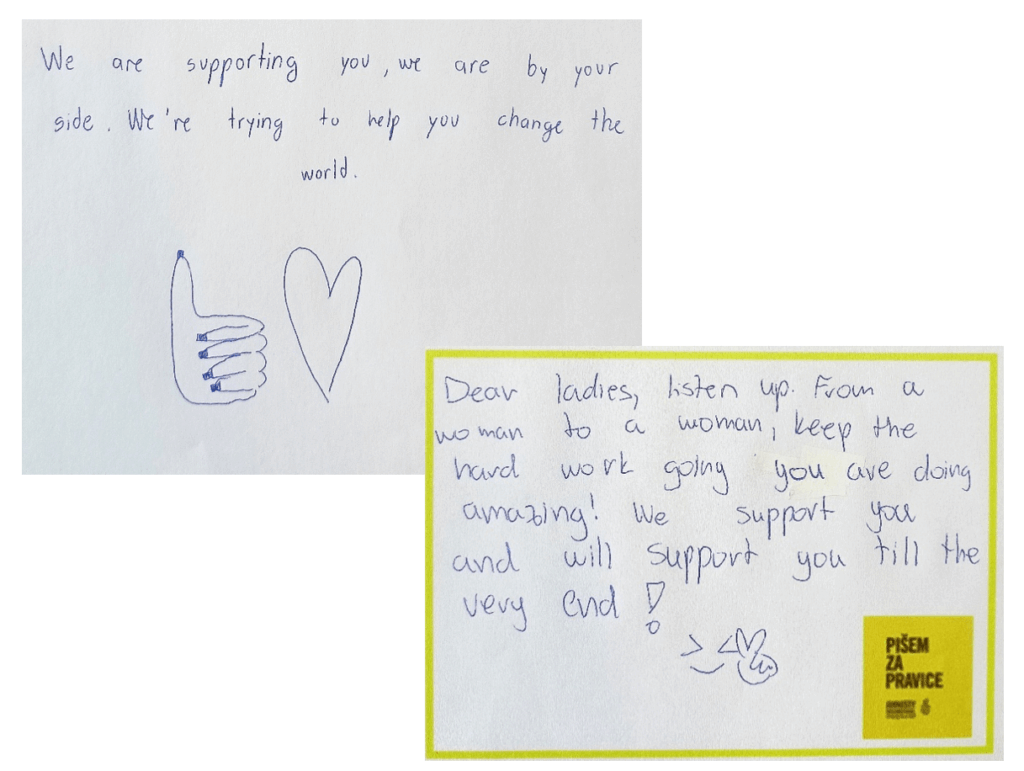 We are supporting you, we are by your
side. We're trying to help you change the
world.
Dear ladies, listen up. From a
woman to a woman, keep the
hard work going you are doing
amazing! We support you
and will support you till the
very end!
PIŠEM
ZA
PRAVICE
AMNESTY